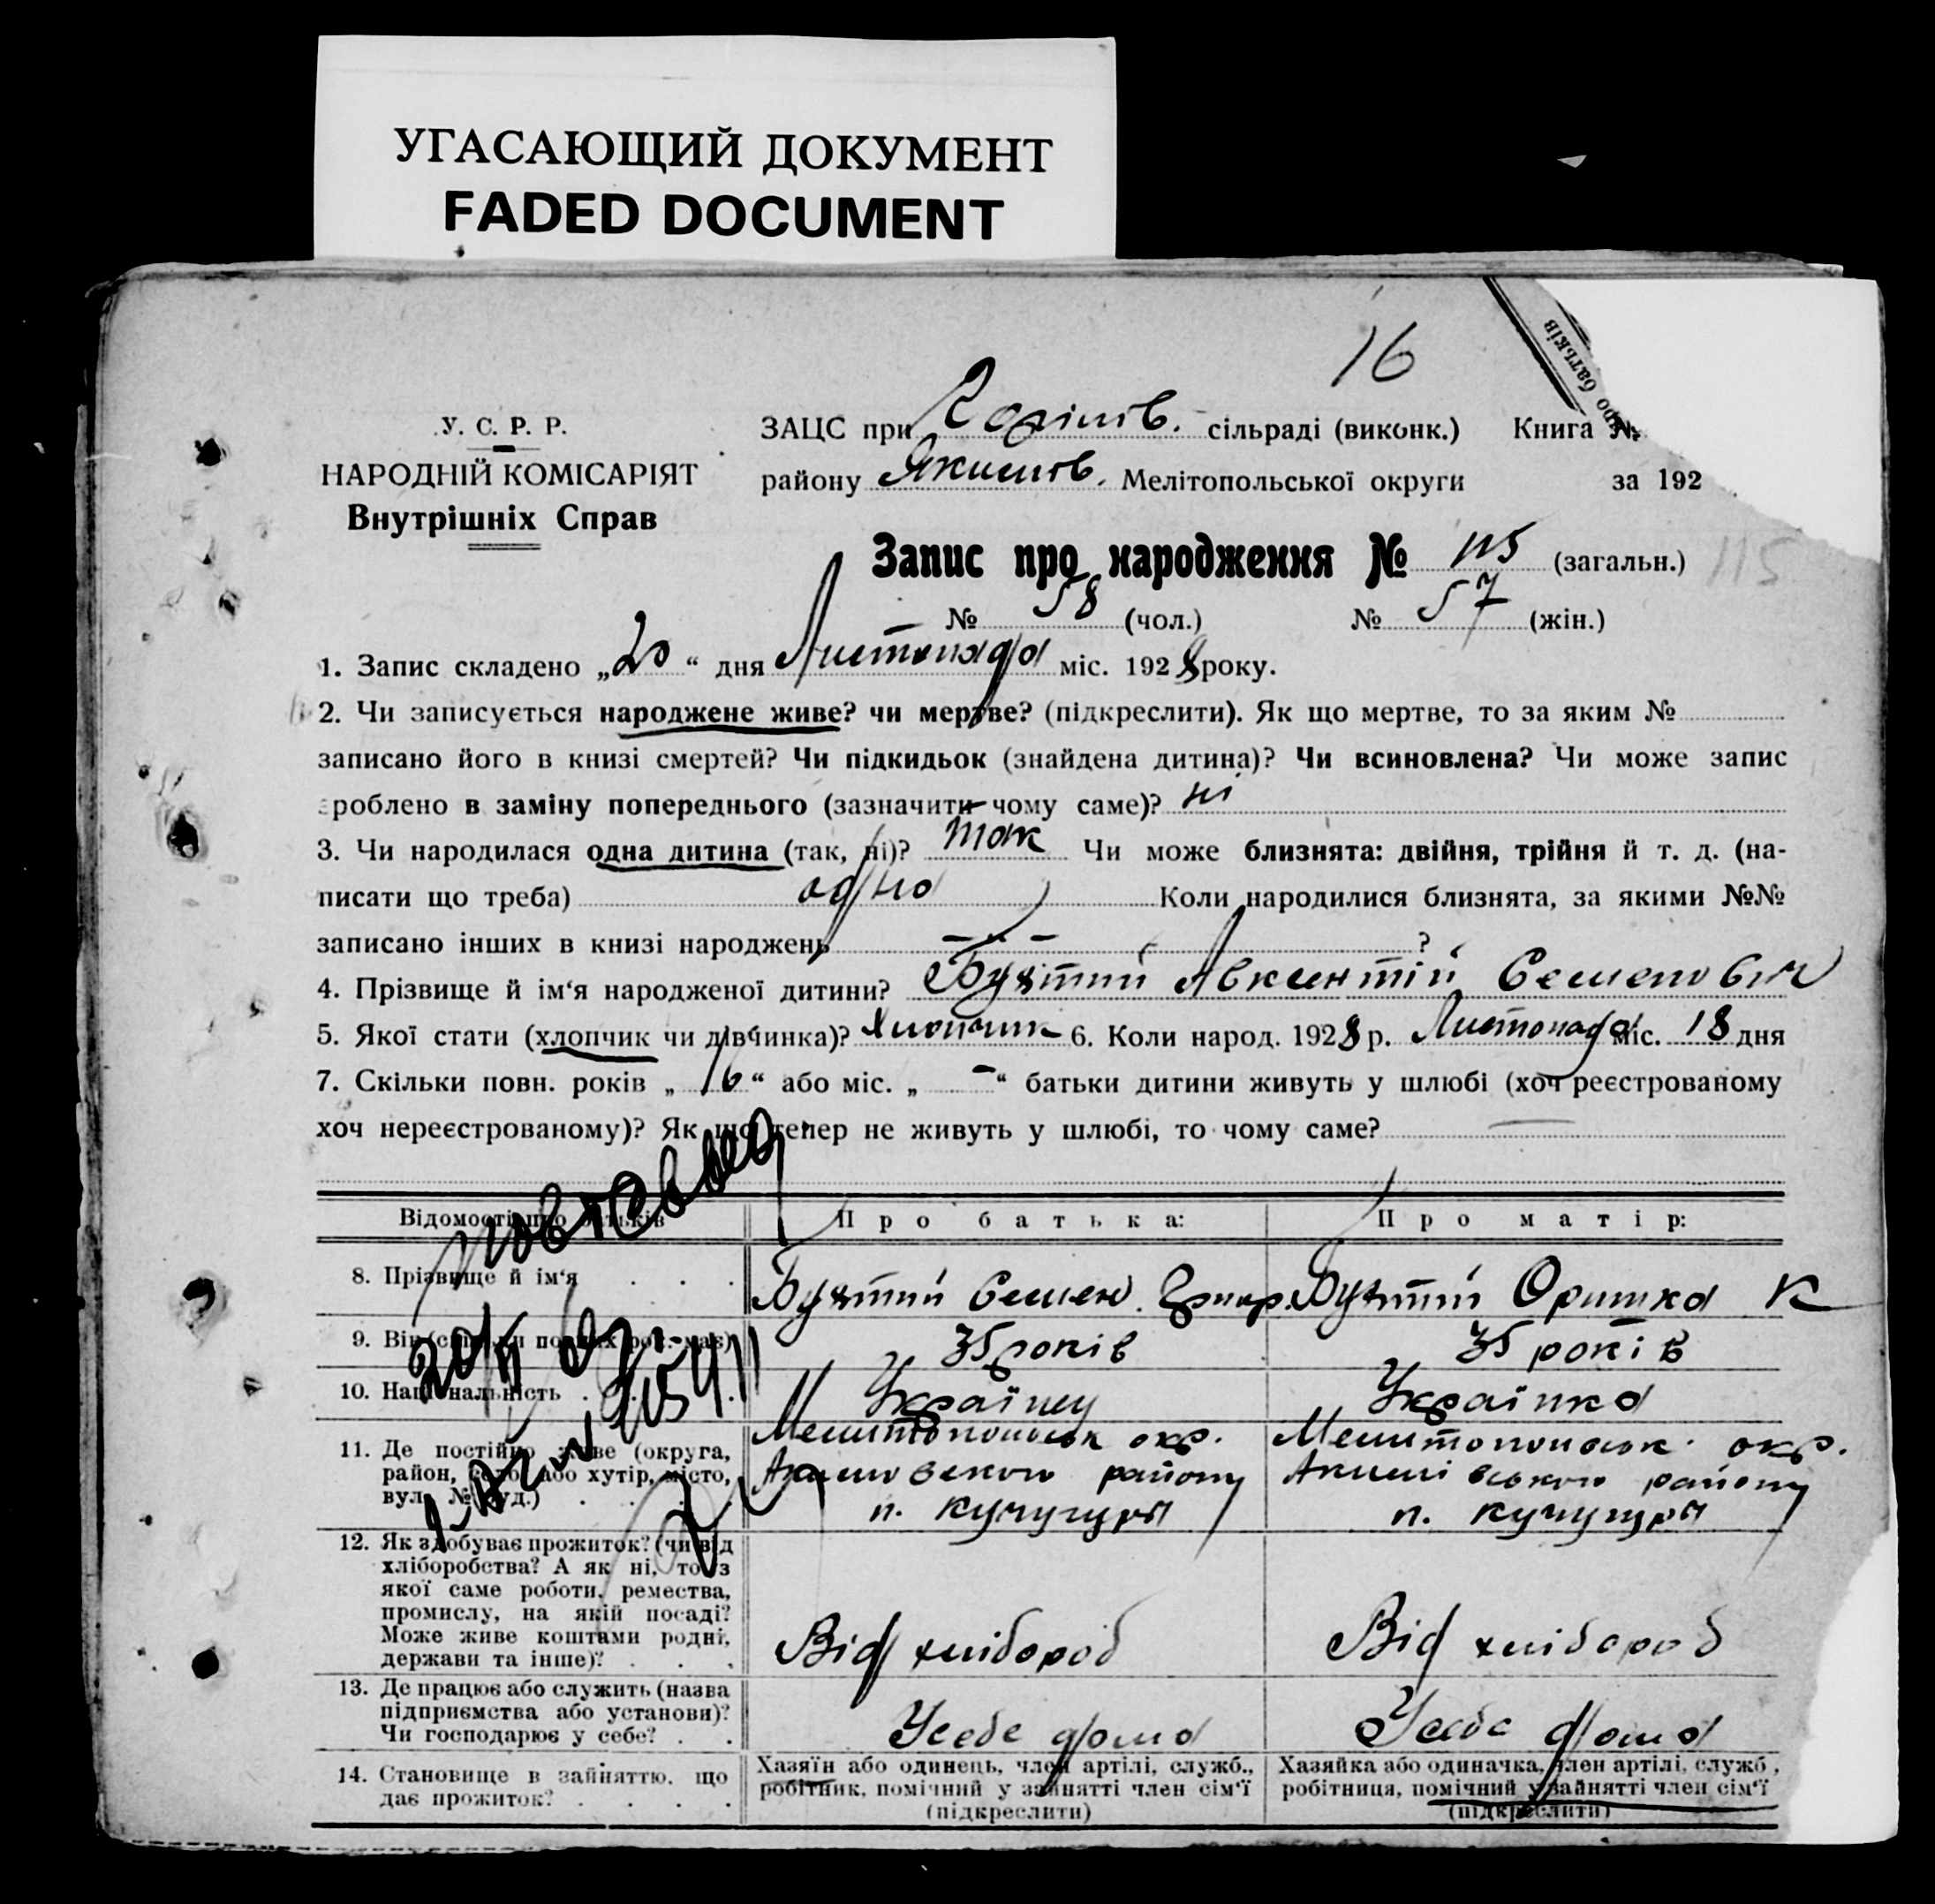 УГАСАЮЩИЙ ДОКУМЕНТ
FADED DOCUMENT
16
ро батьків
У. С. Р. Р.
НАРОДНІЙ КОМІСАРІЯТ
Внутрішніх Справ
ЗАЦС при сільраді (виконк.) Книга №
району Якимів. Мелітопольської округи за 192
Запис про народження № 115 (загальн.) 115
№ 58 (чол.) № 57 (жін.)
1. Запис складено „20“ дня Листопада міс. 1928 року.
2. Чи записується народжене живе? чи мертве? (підкреслити). Як що мертве, то за яким №
записано його в книзі смертей? Чи підкидьок (знайдена дитина)? Чи всиновлена? Чи може запис
зроблено в заміну попереднього (зазначити чому саме)? ні
3. Чи народилася одна дитина (так, ні)? так Чи може близнята: двійня, трійня й т. д. (на-
писати що треба) одно Коли народилися близнята, за якими №№
записано інших в книзі народжень — „ — ?
4. Прізвище й ім‘я народженої дитини? Авксентій Семенович
5. Якої стати (хлопчик чи дівчинка)? Хлопчик 6. Коли народ. 1928 р. Листопада міс. 18 дня
7. Скільки повн. років „16“ або міс. „—“ батьки дитини живуть у шлюбі (хоч реєстрованому
хоч нереєстрованому)? Як що тепер не живуть у шлюбі, то чому саме?
Відомості про батьків Про батька: Про матір:
8. Прізвище й ім‘я Семен Оришка К
9. Вік (скільки повних рок. має) 35 років 35 років
10. Національність Українец Українка
11. Де постійно живе (округа, район, село або хутір, місто, вул. № буд.)
Мелитопольськ окр. Мелитопольськ. окр.
району Акимівського району
п. Кучугуры п. Кучугуры
12. Як здобуває прожиток? (чи від
хліборобства? А як ні, то з
якої саме роботи, ремества,
промислу, на якій посаді?
Може живе коштами родні,
держави та інше)?
Від хлібороб Від хлібороб
13. Де працює або служить (назва
підприємства або установи)?
Чи господарює у себе?
Усебе дома Усебе дома
14. Становище в зайняттю, що
дає прожиток?
Хазяїн або одинець, член артілі, служб.,
робітник, помічний у зайнятті член сім‘ї
(підкреслити)
Хазяйка або одиначка, член артілі, служб.,
робітниця, помічний у зайнятті член сім‘ї
(підкреслити)